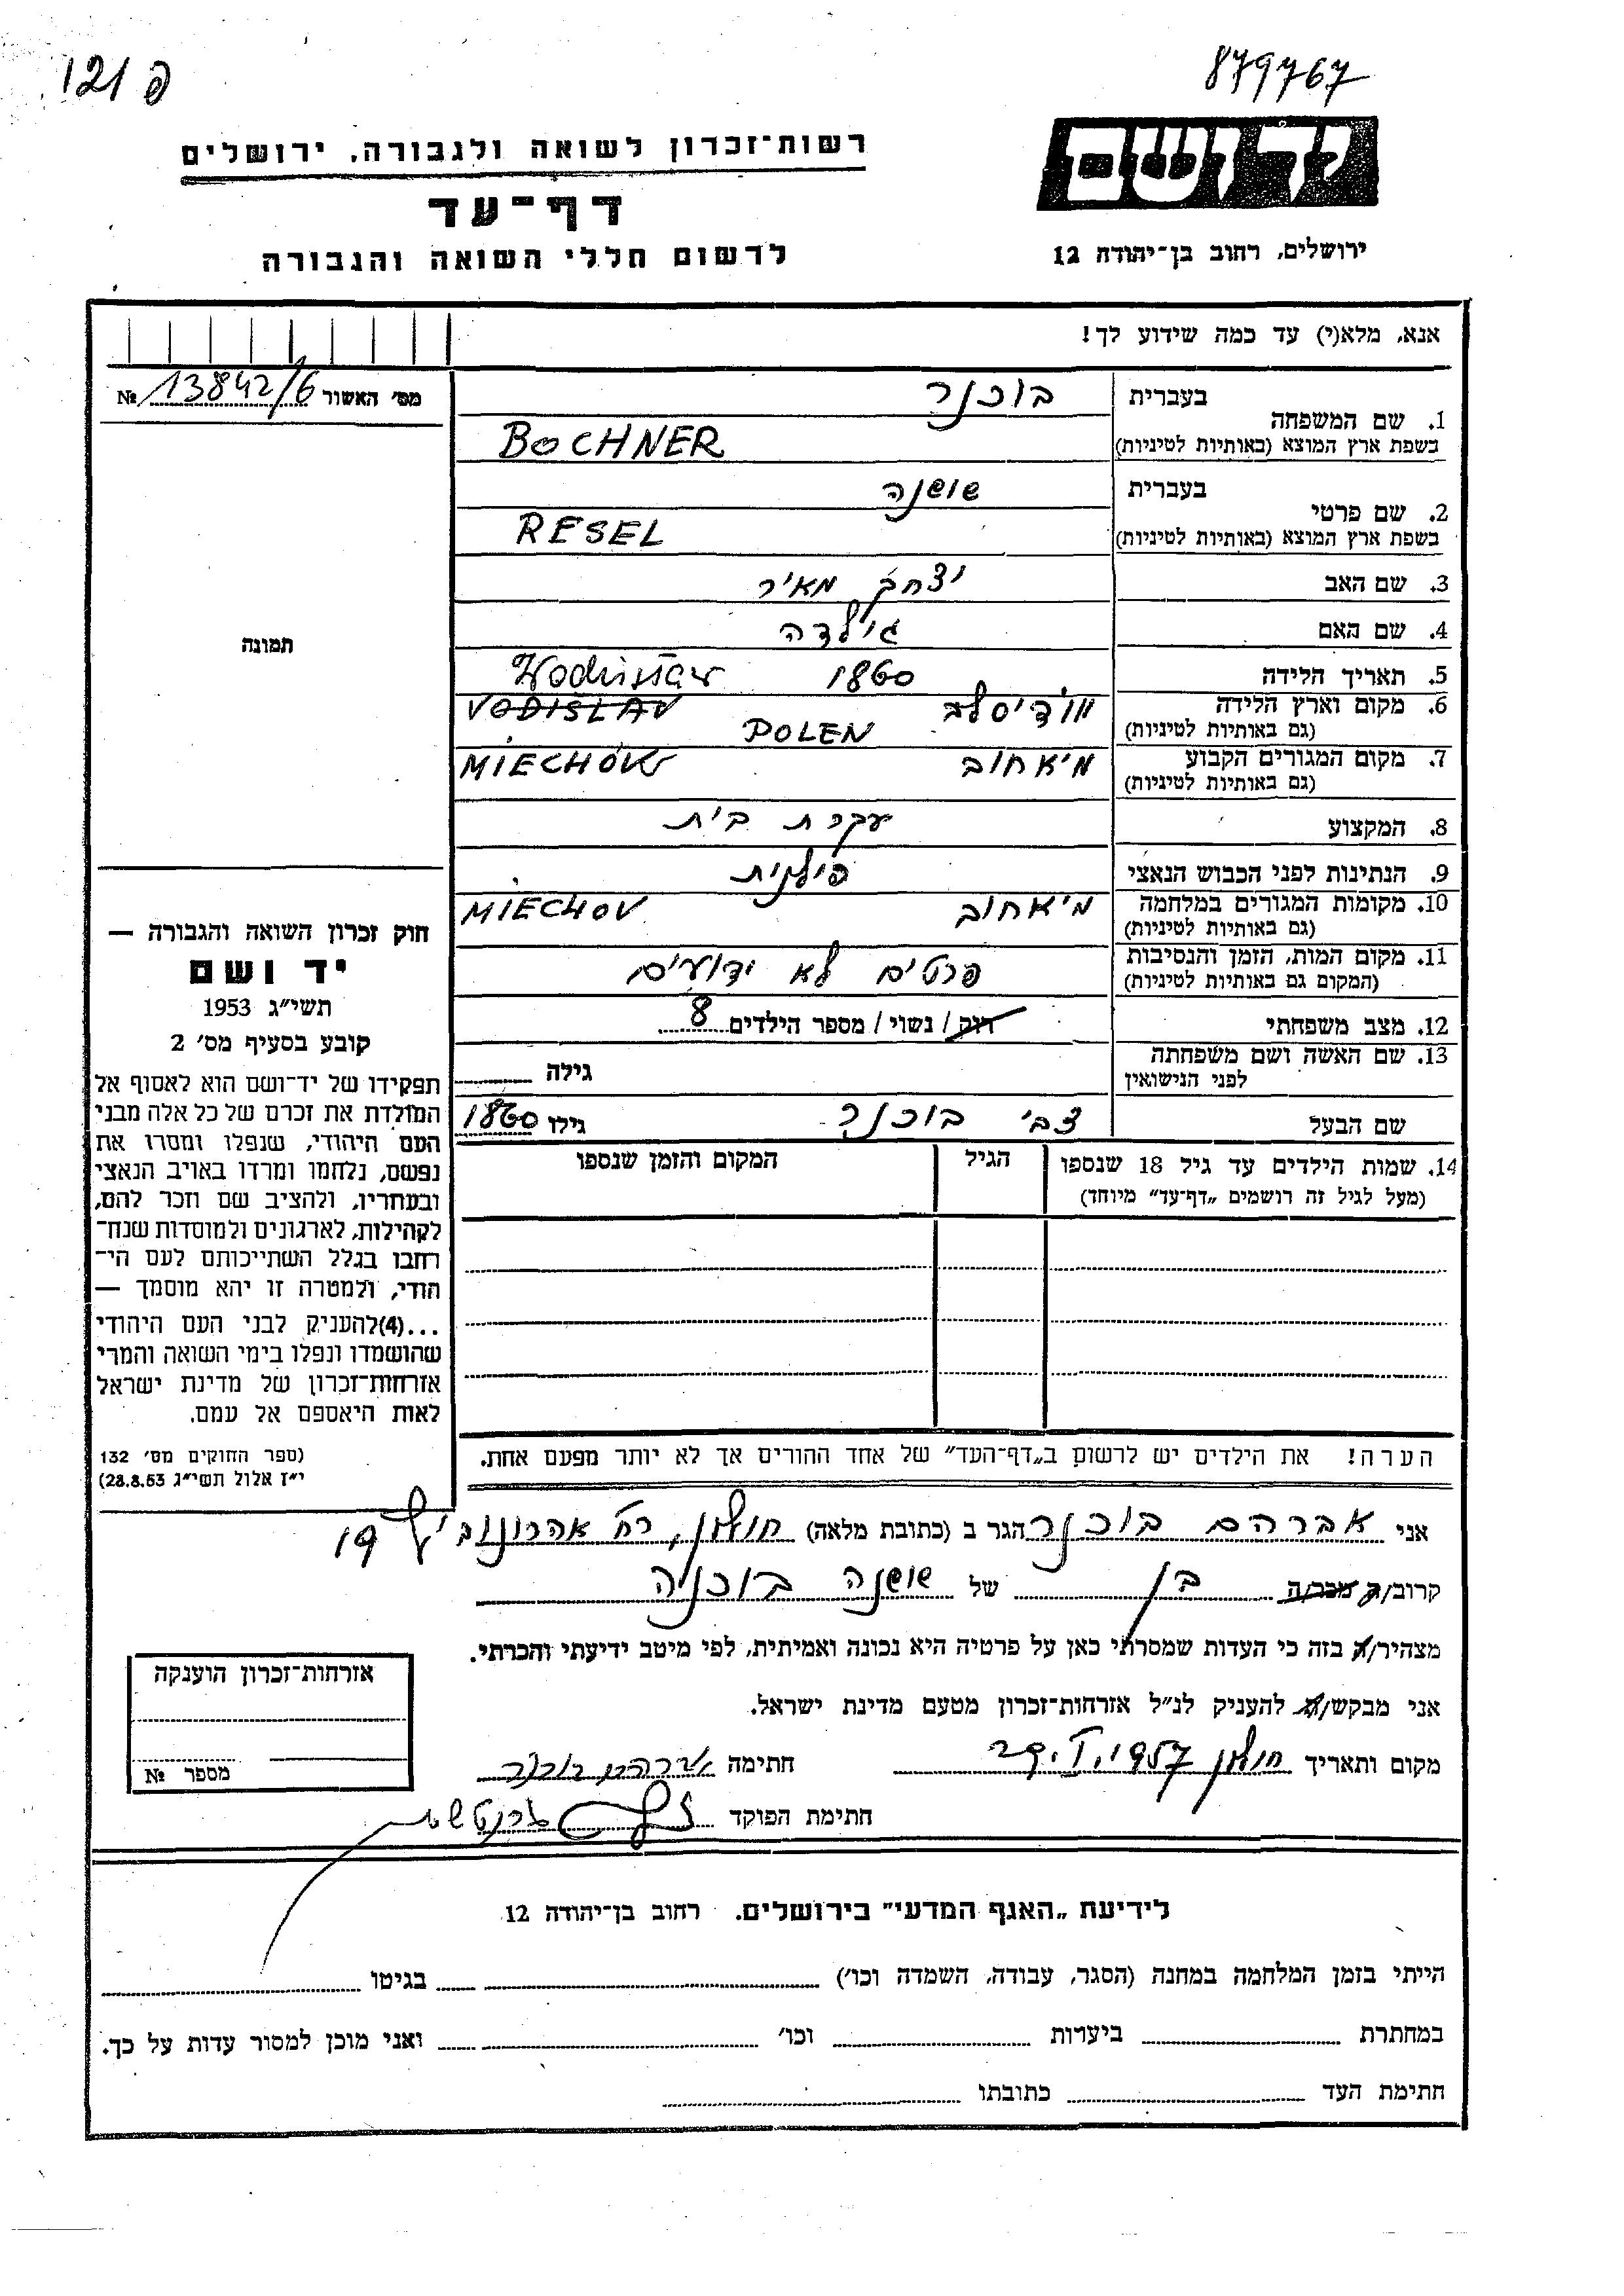 פ 121
879767
יד ושם
רשות־זכרון לשואה ולגבורה, ירושלים
דף־עד
לרשום חללי השואה והגבורה
ירושלים, רחוב בן־יהודה 12
אנא, מלא(י) עד כמה שידוע לך!
מס׳ האשור 13842/6 №
1. שם המשפחה
בעברית בוכנר
בשפת ארץ המוצא (באותיות לטיניות) BOCHNER
2. שם פרטי
בעברית שושנה
בשפת ארץ המוצא (באותיות לטיניות) RESEL
3. שם האב יצחק מאיר
4. שם האם גילדה
5. תאריך הלידה 1860
6. מקום וארץ הלידה וודיסלב VODISLAV
(גם באותיות לטיניות) POLEN
7. מקום המגורים הקבוע מיאחוב MIECHÓW
(גם באותיות לטיניות)
8. המקצוע עקרת בית
9. הנתינות לפני הכבוש הנאצי פולנית
10. מקומות המגורים במלחמה מיאחוב MIECHOV
(גם באותיות לטיניות)
11. מקום המות, הזמן והנסיבות פרטים לא ידועים
(המקום גם באותיות לטיניות)
12. מצב משפחתי רוק / נשוי / מספר הילדים 8
13. שם האשה ושם משפחתה
לפני הנישואין גילה
שם הבעל צבי בוכנר גילו 1860
14. שמות הילדים עד גיל 18 שנספו הגיל המקום והזמן שנספו
(מעל לגיל זה רושמים „דף־עד” מיוחד)
הערה! את הילדים יש לרשום ב„דף־העד” של אחד ההורים אך לא יותר מפעם אחת.
תמונה
חוק זכרון השואה והגבורה —
יד ושם
תשי״ג 1953
קובע בסעיף מס׳ 2
תפקידו של יד־ושם הוא לאסוף אל
המולדת את זכרם של כל אלה מבני
העם היהודי, שנפלו ומסרו את
נפשם, נלחמו ומרדו באויב הנאצי
ובעוזריו, ולהציב שם וזכר להם,
לקהילות, לארגונים ולמוסדות שנח־
רבו בגלל השתייכותם לעם הי־
הודי, ולמטרה זו יהא מוסמך —
...(4)להעניק לבני העם היהודי
שהושמדו ונפלו בימי השואה והמרי
אזרחות־זכרון של מדינת ישראל
לאות היאספם אל עמם.
(ספר החוקים מס׳ 132
י״ז אלול תשי״ג 28.8.53)
אני אברהם בוכנר הגר ב (כתובת מלאה) חולון, רח׳ אהרונוביץ 19
קרוב/ה מכר/ה בן של שושנה בוכנר
מצהיר/ה בזה כי העדות שמסרתי כאן על פרטיה היא נכונה ואמיתית, לפי מיטב ידיעתי והכרתי.
אני מבקש/ת להעניק לנ״ל אזרחות־זכרון מטעם מדינת ישראל.
מקום ותאריך חולון חתימה אברהם בוכנר
חתימת הפוקד
אזרחות־זכרון הוענקה
מספר №
לידיעת „האגף המדעי” בירושלים. רחוב בן־יהודה 12
הייתי בזמן המלחמה במחנה (הסגר, עבודה, השמדה וכו׳) בגיטו
במחתרת ביערות וכו׳ ואני מוכן למסור עדות על כך.
חתימת העד כתובתו